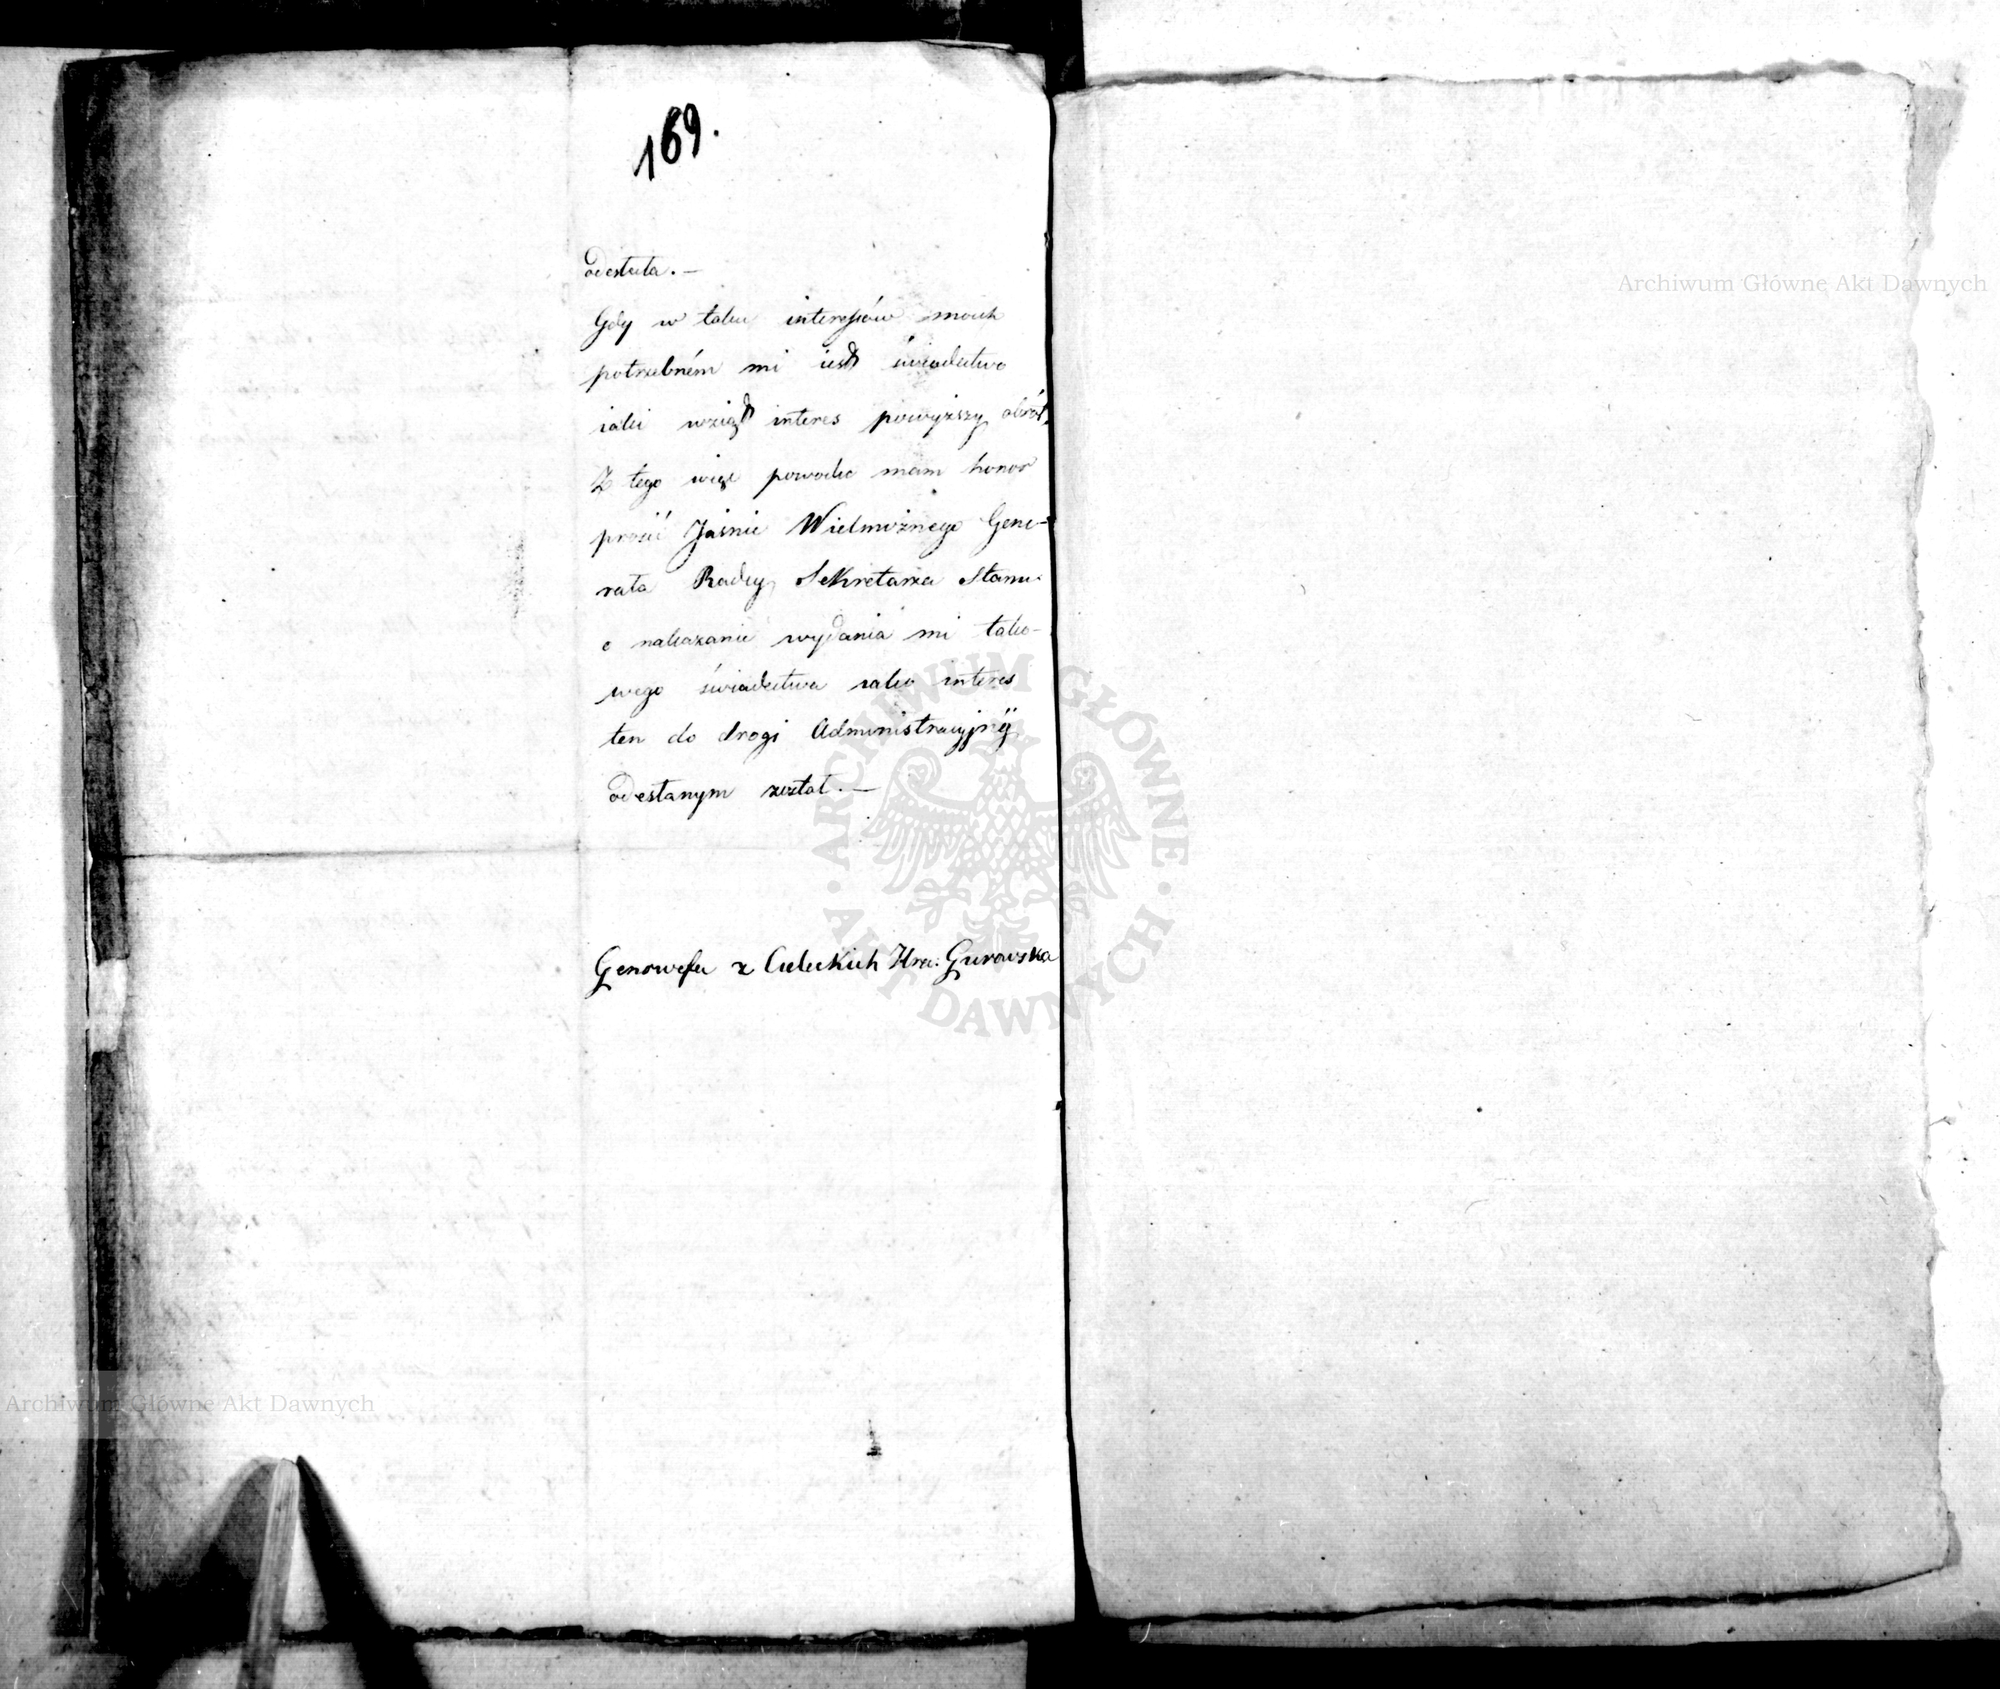 169.
odesłała. —
Gdy w toku interessów moich
potrzebném mi iest świadectwo
iaki wziął interes powyższy obrót,
Z tego więc powodu mam honor
prosić Jaśnie Wielmożnego Gene-
rała Radcy Sekretarza Stanu
o nakazanie wydania mi tako-
wego świadectwa iako interes
ten do drogi Administracyjnÿ
odesłanym został. —
Genowefa z Cieleckich Hra: Gurowska
Archiwum Główne Akt Dawnych
Archiwum Główne Akt Dawnych
ARCHIWUM GŁÓWNE · AKT DAWNYCH ·